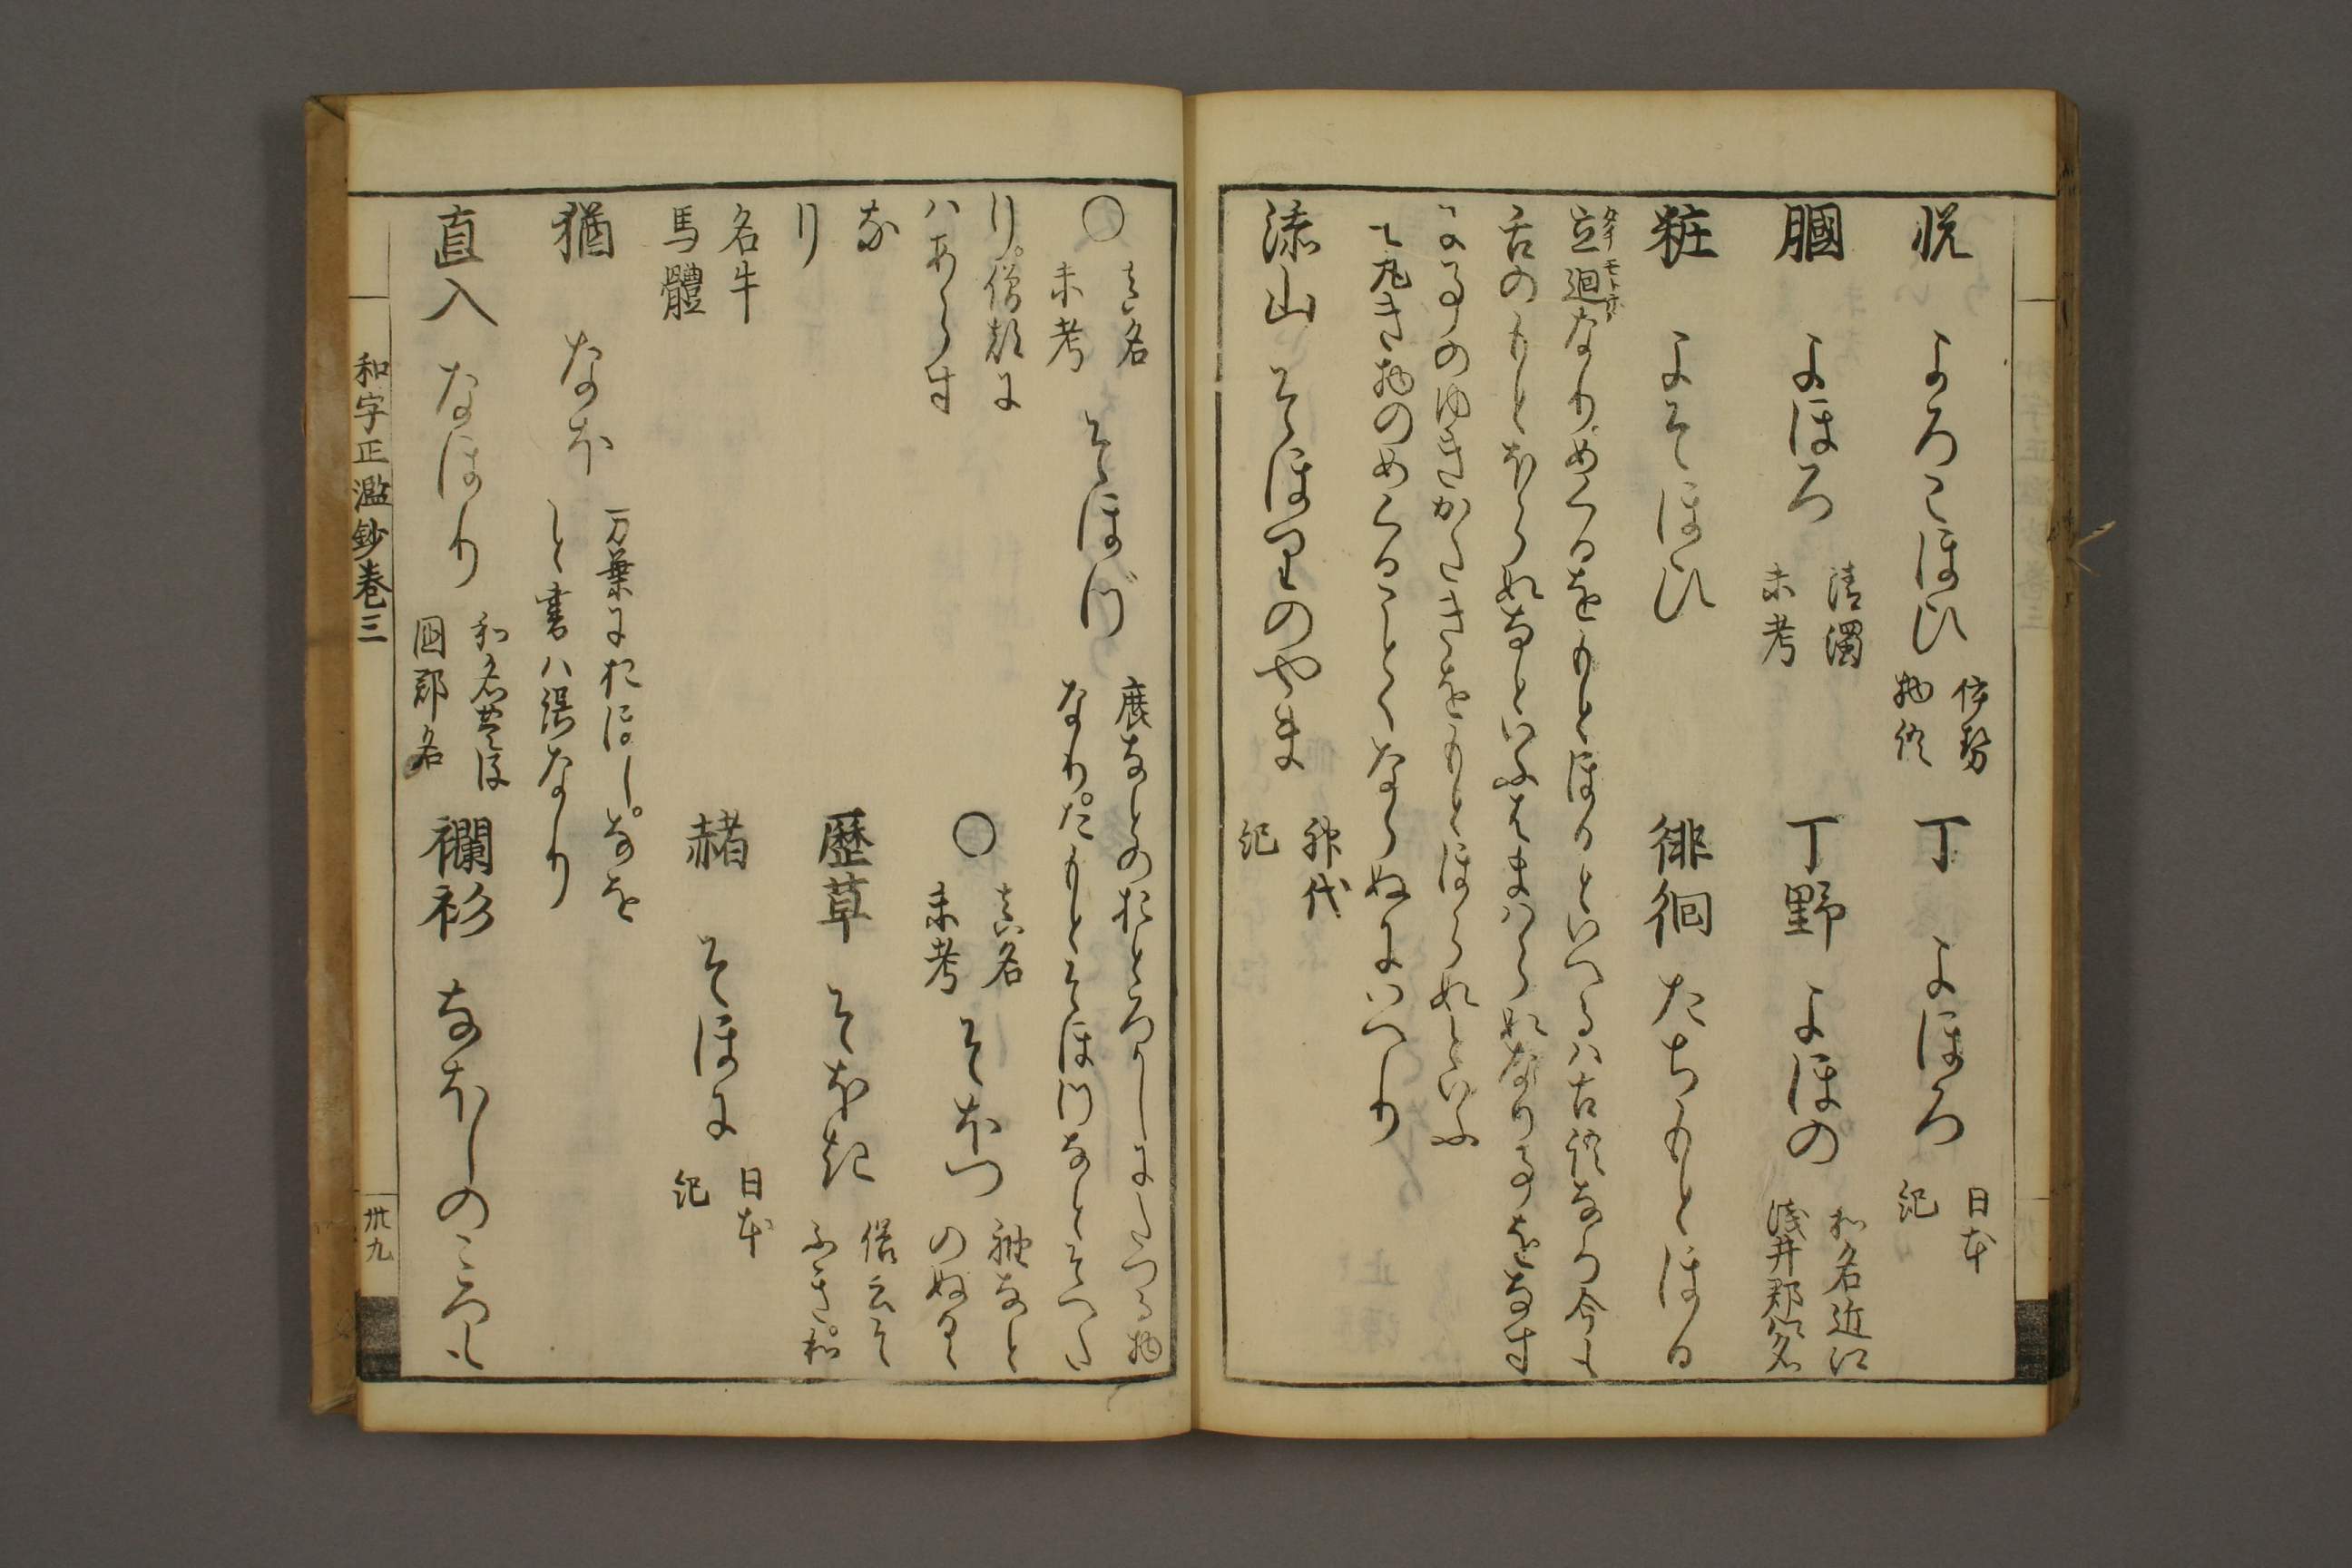 悦 よろこほひ 伊勢
物語
丁 よほろ 日本
紀
膕 よほろ 清濁
未考
丁野 よほの 和名近江
浅井郡郷名
粧 よそほひ
徘徊 たちもとほる
立廻なり。めくるをもとほるといへるハ古語なり今も
舌のもとをらぬなといふはまハらぬなり事をなす
にる事のゆきかたきをもとほらぬといふ
て丸き物のめくることくならぬにいへり
添山 そほりのやま 神代
紀
○ 真名
未考
そほづ 鹿なとのおとろかしにたつる物
なり。たもとそほつなとそへた
り。僧都に
ハあらす
○ 真名
未考
そほつ 袖なと
のぬるゝ
な
り
歴草 そほき 俗云そ
ふき。和
名牛
馬體
赭 そほに 日本
紀
猶 なほ 万葉におほし。なを
と書ハ誤なり
直入 なほり 和名豊後
國郡名
襴衫 なほしのころも
和字正濫鈔巻三
卅九